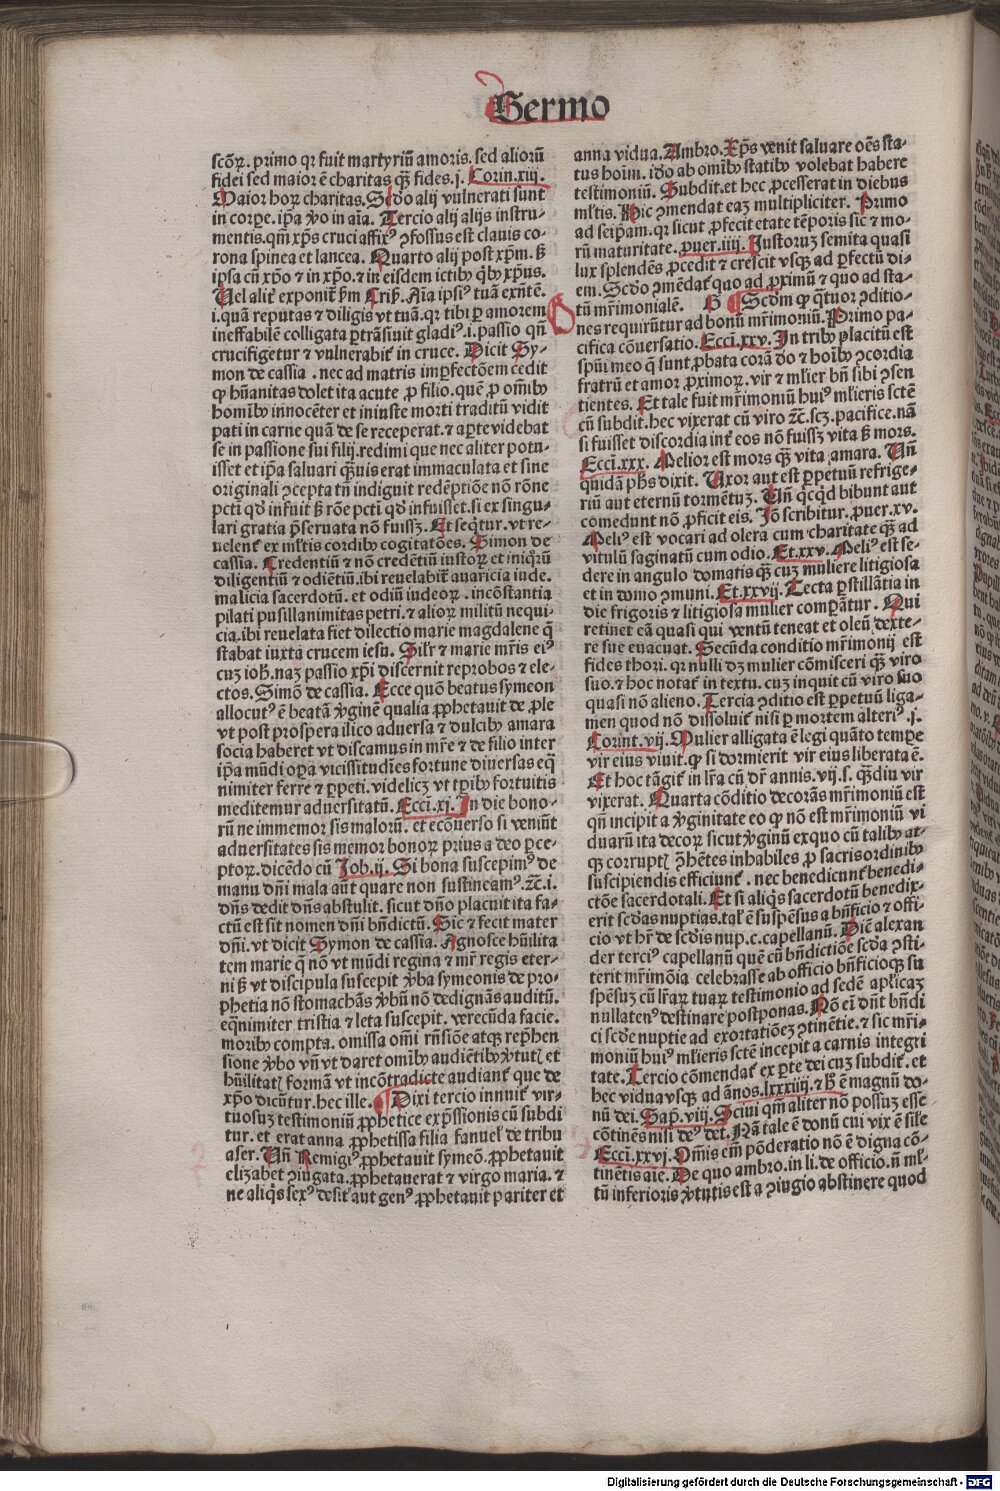 Sermo
scōꝝ. primo qꝛ fuit martyriū amoris. sed aliorū
fidei sed maior ē charitas qᷓ fides. j. Corin. xiij.
Maior hoꝝ charitas. Scd̄o alij vulnerati sunt
in corꝑe. ip̄a v̄o in aīa. Tercio alij alijs instru-
mentis. qm̄ xp̄s cruci affixꝰ ꝯfossus est clauis co-
rona spinea et lancea. Quarto alij post xp̄m. ß
ipsa cū xp̄o ⁊ in xp̄o. ⁊ in eisdem ictibꝰ qͥbꝰ xp̄us.
Uel alit̄ exponit̄ ẜm Crip̄. Aīa ipsiꝰ tuā exn̄tē.
i. quā reputas ⁊ diligis vt tuā. qꝛ tibi ꝑ amorem
ineffabilē colligata ꝑtrāsiuit gladiꝰ. i. passio qn̄
crucifigetur ⁊ vulnerabit̄ in cruce. Dicit Sy-
mon de cassia. nec ad matris imꝑfectōem cedit
ꝙ hūanitas dolet ita acute ꝓ filio. quē ꝓ om̄ibꝰ
homībꝰ innocēter et iniuste morti traditū vidit
pati in carne quā de se receperat. ⁊ aꝑte videbat
se in passione sui filij. redimi que nec aliter potu-
isset et ip̄a saluari qᷓuis erat immaculata et sine
originali ꝯcepta tn̄ indiguit redēptiōe nō rōne
pctī qd̄ infuit ß rōe pctī qd̄ infuisset. si ex singu-
lari gratia p̄seruata nō fuissꝫ. Et seqͥtur. vt re-
uelent̄ ex ml̄tis cordibꝰ cogitatōes. Simon de
cassia. Credentiū ⁊ nō credētiū iustoꝝ et iniqͦrū
diligentiū ⁊ odiētiū. ibi reuelabit̄ auaricia iude.
malicia sacerdotū. et odiū iudeoꝝ. incōstantia
pilati pusillanimitas petri. ⁊ alioꝝ militū nequi-
cia. ibi reuelata fiet dilectio marie magdalene q̄
stabat iuxta crucem iesu. Silr̄ ⁊ marie mr̄is eiꝰ
cuꝫ ioh̄. naꝫ passio xp̄i discernit reprobos ⁊ ele-
ctos. Simō de cassia. Ecce quō beatus symeon
allocutꝰ ē beatā v̄ginē qualia ꝓphetauit de ꝓle
vt post prospera ilico aduersa ⁊ dulcibꝰ amara
socia haberet vt discamus in mr̄e ⁊ de filio inter
ip̄a mūdi oꝑa vicissitudīes fortune diuersas eqͣ
nimiter ferre ⁊ ꝑpeti. videlicꝫ vt tp̄ibꝰ fortuitis
meditemur aduersitatū. Ecci. xj. In die bono-
rū ne immemor sis malorū. et ecōuerso si veniūt
aduersitates sis memor bonoꝝ prius a deo ꝑce-
ptoꝝ. dicēdo cū Job. ij. Si bona suscepimꝰ de
manu dn̄i mala aūt quare non sustineamꝰ. ⁊c̄. i.
dn̄s dedit dn̄s abstulit. sicut dn̄o placuit ita fa-
ctū est sit nomen dn̄i bn̄dictū. Sic ⁊ fecit mater
dn̄i. vt dicit Symon de cassia. Agnosce hūilita
tem marie q̄ nō vt mūdi regina ⁊ mr̄ regis eter-
ni ß vt discipula suscepit v̄ba symeonis de pro-
phetia nō stomachās v̄bū nō dedignās auditū.
eqͣnimiter tristia ⁊ leta suscepit. verecūda facie.
moribꝰ compta. omissa om̄i rn̄siōe atqꝫ rep̄hen
sione v̄bo vn̄ vt daret om̄ibꝰ audiētibꝰ v̄tutꝭ et
hūilitatꝭ formā vt incōtradicte audiant̄ que de
xp̄o dicūtur. hec ille. ¶ Dixi tercio innuit̄ vir-
tuosuꝫ testimoniū ꝓphetice exp̄ssionis cū subdi
tur. et erat anna ꝓphetissa filia fanuel de tribu
aser. Vn̄ Remigiꝰ ꝓphetauit symeō. ꝓphetauit
elizabet ꝯiugata. ꝓphetauerat ⁊ virgo maria. ⁊
ne aliqͥs sexꝰ desit̄ aut genꝰ ꝓphetauit pariter et
anna vidua. Ambro. Xp̄s venit saluare oēs sta-
tus hoīm. id̄o ab om̄ibꝰ statibꝰ volebat habere
testimoniū. Subdit. et hec ꝓcesserat in diebus
ml̄tis. Hic ꝯmendat eaꝫ multipliciter. Primo
ad seip̄am. qꝛ sicut ꝓfecit etate tēporis sic ⁊ mo-
rū maturitate. ꝓuer. iiij. Justoruꝫ semita quasi
lux splendēs ꝓcedit ⁊ crescit vsqꝫ ad ꝑfectū di-
em. Scd̄o ꝯmēdat̄ quo ad ꝓximū ⁊ quo ad sta-
tū mr̄imonialē. B ¶ Scd̄m ꝙ qͣtuor ꝯditio-
nes requirūtur ad bonū mr̄imoniū. Primo pa-
cifica cōuersatio. Ecci. xxv. In tribꝰ placitū est
spūi meo q̄ sunt ꝓbata corā do ⁊ hoībꝰ ꝯcordia
fratrū et amor ꝓximoꝝ. vir ⁊ ml̄ier bn̄ sibi ꝯsen
tientes. Et tale fuit mr̄imoniū huiꝰ ml̄ieris sctē
cū subdit. hec vixerat cū viro ⁊c̄. scꝫ. pacifice. nā
si fuisset discordia int̄ eos nō fuissꝫ vita ß mors.
Ecci. xxx. Melior est mors qᷓ vita amara. Vn̄
quidā ph̄s dixit. Uxor aut est ꝑpetuū refrige-
riū aut eternū tormētuꝫ. Vn̄ qͥcqͥd bibunt aut
comedunt nō ꝓficit eis. Jō scribitur. ꝓuer. xv.
Meliꝰ est vocari ad olera cum charitate qᷓ ad
vitulū saginatū cum odio. Et. xxv. Meliꝰ est se-
dere in angulo domatis qᷓ cuꝫ muliere litigiosa
et in domo ꝯmuni. Et. xxvij. Tecta ꝑstillātia in
die frigoris ⁊ litigiosa mulier comꝑātur. Qui
retinet eā quasi qui ventū teneat et oleū dexte-
re sue euacuat. Secūda conditio mr̄imonij est
fides thori. qꝛ nulli dꝫ mulier cōmisceri qᷓ viro
suo. ⁊ hoc notat̄ in textu. cuꝫ inquit cū viro suo
quasi nō alieno. Tercia ꝯditio est ꝑpetuū liga-
men quod nō dissoluit̄ nisi ꝑ mortem alteriꝰ. j.
Corint. vij. Mulier alligata ē legi quāto tempe
vir eius viuit. ꝙ si dormierit vir eius liberata ē.
Et hoc tāgit̄ in lr̄a cū dr̄ annis. vij. s. qᷓdiu vir
vixerat. Quarta cōditio decorās mr̄imoniū est
qn̄ incipit a v̄ginitate eo ꝙ nō est mr̄imoniū vi
duarū ita decoꝝ sicut v̄ginū exquo cū talibꝰ at-
qꝫ corruptꝭ ꝯh̄entes inhabiles ꝓ sacris ordinibꝰ
suscipiendis efficiunt̄. nec benedicunt̄ benedi-
ctōe sacerdotali. Et si aliqͥs sacerdotū benedix-
erit scd̄as nuptias. talꝭ ē suspēsus a bn̄ficio ⁊ offi-
cio vt hr̄ de scd̄is nup. c. capellanū. Dic̄ alexan
der terciꝰ capellanū quē cū bn̄dictiōe scd̄a ꝯsti-
terit mr̄imōia celebrasse ab officio bn̄ficioqꝫ su
spēsuꝫ cū lr̄aꝝ tuaꝝ testimonio ad sedē aplicaꝫ
nullatenꝰ destinare postponas. Nō ei dn̄t bn̄di
ci scd̄e nuptie ad exortatiōeꝫ ꝯtinētie. ⁊ sic mr̄i-
moniū huiꝰ ml̄ieris sctē incepit a carnis integri
tate. Tercio cōmendat̄ ex ꝑte dei cuꝫ subdit̄. et
hec vidua vsqꝫ ad ānos. lxxxiiij. ⁊ ß ē magnū do-
nū dei. Sap̄. viij. Sciui qm̄ aliter nō possuꝫ esse
cōtinēs nisi deꝰ det. Nā tale ē donū cui vix ē sile
Ecci. xxvj. Om̄is em̄ pōderatio nō ē digna cō-
tinētis aīe. De quo ambro. in li. de officio. n̄ ml̄-
tū inferioris v̄tutis est a ꝯiugio abstinere quod
Digitalisierung gefördert durch die Deutsche Forschungsgemeinschaft - DFG